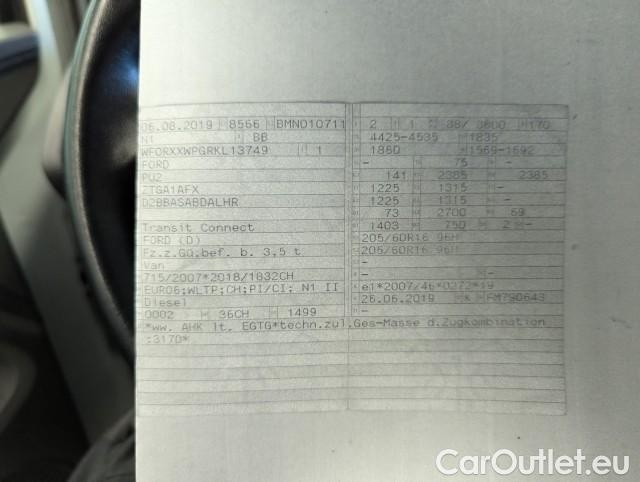 06.08.2019 8566 BMND10711
N1 BB
WF0RXXWPGRKL13749 1
FORD
PU2
ZTGA1AFX
D2BBASABDALHR
Transit Connect
FORD (D)
Fz.z.Gü.bef. b. 3,5 t
Van
715/2007*2018/1832CH
EURO6;WLTP;CH;PI/CI; N1 II
Diesel
0002 36CH 1499
2 1 88/ 3600 170
4425-4535 1835
1860 1569-1692
- 75 -
141 2385 2385
1225 1315 -
1225 1315 -
73 2700 69
1403 750 2 -
205/60R16 96H
205/60R16 96H
-
-
e1*2007/46*0272*19
26.06.2019 K FM790643
-
*ww. AHK lt. EGTG*techn.zul.Ges-Masse d.Zugkombination
:3170*
CarOutlet.eu